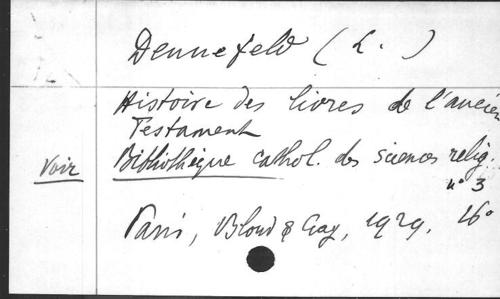 Dennefeld (L.)
Histoire des livres de l'ancien
Testament
Voir Bibliothèque cathol. des sciences relig.
n° 3
Paris, Bloud & Gay, 1929. 16°